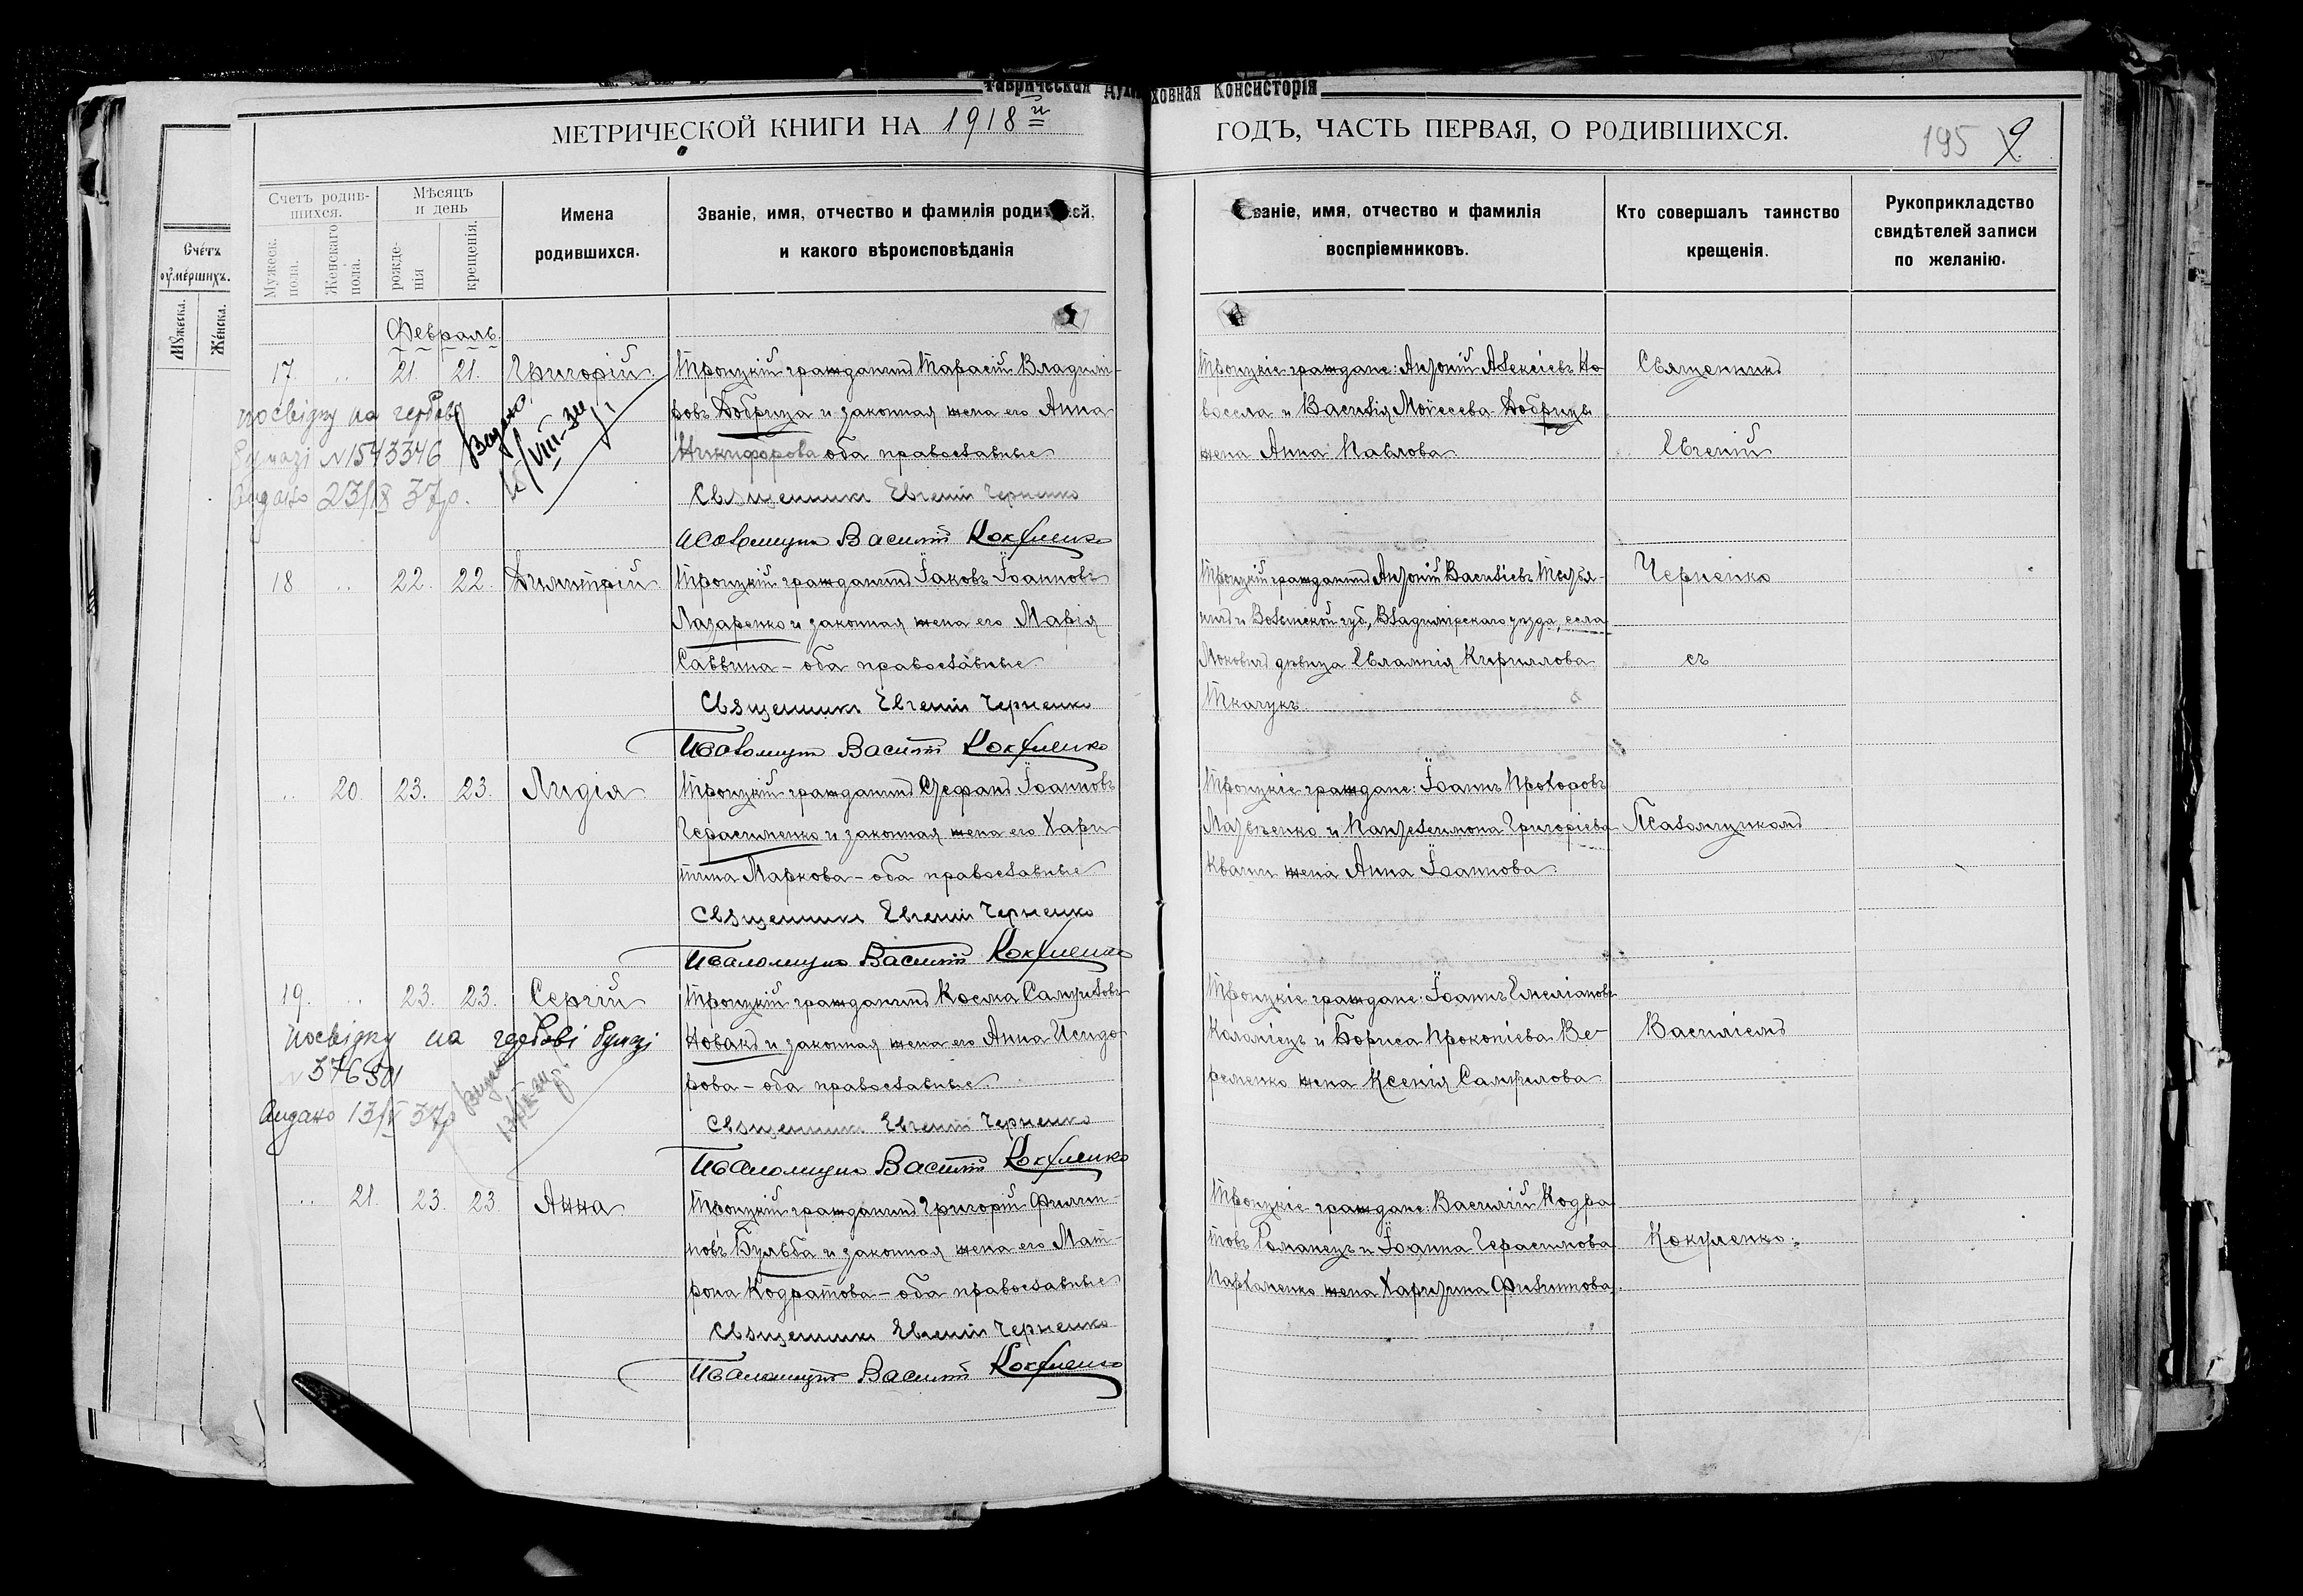 Таврическая Духовная Консисторія
МЕТРИЧЕСКОЙ КНИГИ НА 1918й ГОДЪ, ЧАСТЬ ПЕРВАЯ, О РОДИВШИХСЯ.
195 9
Счетъ умершихъ.
Мужеска.
Женска.
Счетъ родившихся.
Мужеск. пола.
Женскаго пола.
Мѣсяцъ и день
рожденія
крещенія.
Имена
родившихся.
Званіе, имя, отчество и фамилія родителей,
и какого вѣроисповѣданія
Званіе, имя, отчество и фамилія
воспріемниковъ.
Кто совершалъ таинство
крещенія.
Рукоприкладство
свидѣтелей записи
по желанію.
Февраль.
17. .. 21. 21. Григорій.
Троицкій гражданинъ Тарасій Владимі-
ровъ Добрица и законная жена его Анна
Никифорова оба православные
Священникъ Евгеній Черненко
Псаломщикъ Василій Кокуленко
Троицкіе граждане: Антоній Алексіевъ Но
восела и Василія Моисеева Добрицы
жена Анна Павлова
посвідку на гербові
N 1543346
Видано 23/18 37р.
Видано
18 .. 22. 22. Димитрій
Троицкій гражданинъ Іаковъ Іоанновъ
Лазаренко и законная жена его Марія
Саввина – оба православные
Священникъ Евгеній Черненко
Псаломщикъ Василій Кокуленко
Троицкій гражданинъ Антоній Василіевъ
и Волынской губ., Владимірскаго уѣзда, села
дѣвица Евлампія Кириллова
Ткачукъ
.. 20. 23. 23. Лидія
Троицкій гражданинъ Стефанъ Іоанновъ
Герасименко и законная жена его Хари
тина Маркова – оба православные
Священникъ Евгеній Черненко
Псаломщикъ Василій Кокуленко
Троицкіе граждане: Іоаннъ Прохоровъ
и Пантелеимона Григоріева
Квачи жена Анна Іоаннова.
19. .. 23. 23. Сергій
Троицкій гражданинъ Косма Самуиловъ
Новакъ и законная жена его Анна Исидо
рова – оба православные
Священникъ Евгеній Черненко
Псаломщикъ Василій Кокуленко
Троицкіе граждане: Іоаннъ Емеліановъ
и Бориса Прокопіева Ве-
ременко жена Ксенія Самуилова
посвідку на гербові бумазі
N 376501
Видано 13/X 37р
.. 21. 23. 23. Анна
Троицкій гражданинъ Григорій Филип-
повъ Бульба и законная жена его Мат-
рона Кодратова – оба православные
Священникъ Евгеній Черненко
Псаломщикъ Василій Кокуленко
Троицкіе граждане: Василій Кодра
товъ Романецъ и Іоанна Герасимова
Пархоменко жена Харитина Филиппова
Священникъ
Евгеній
Черненко
съ
Псаломщикомъ
Василіемъ
Кокуленко.